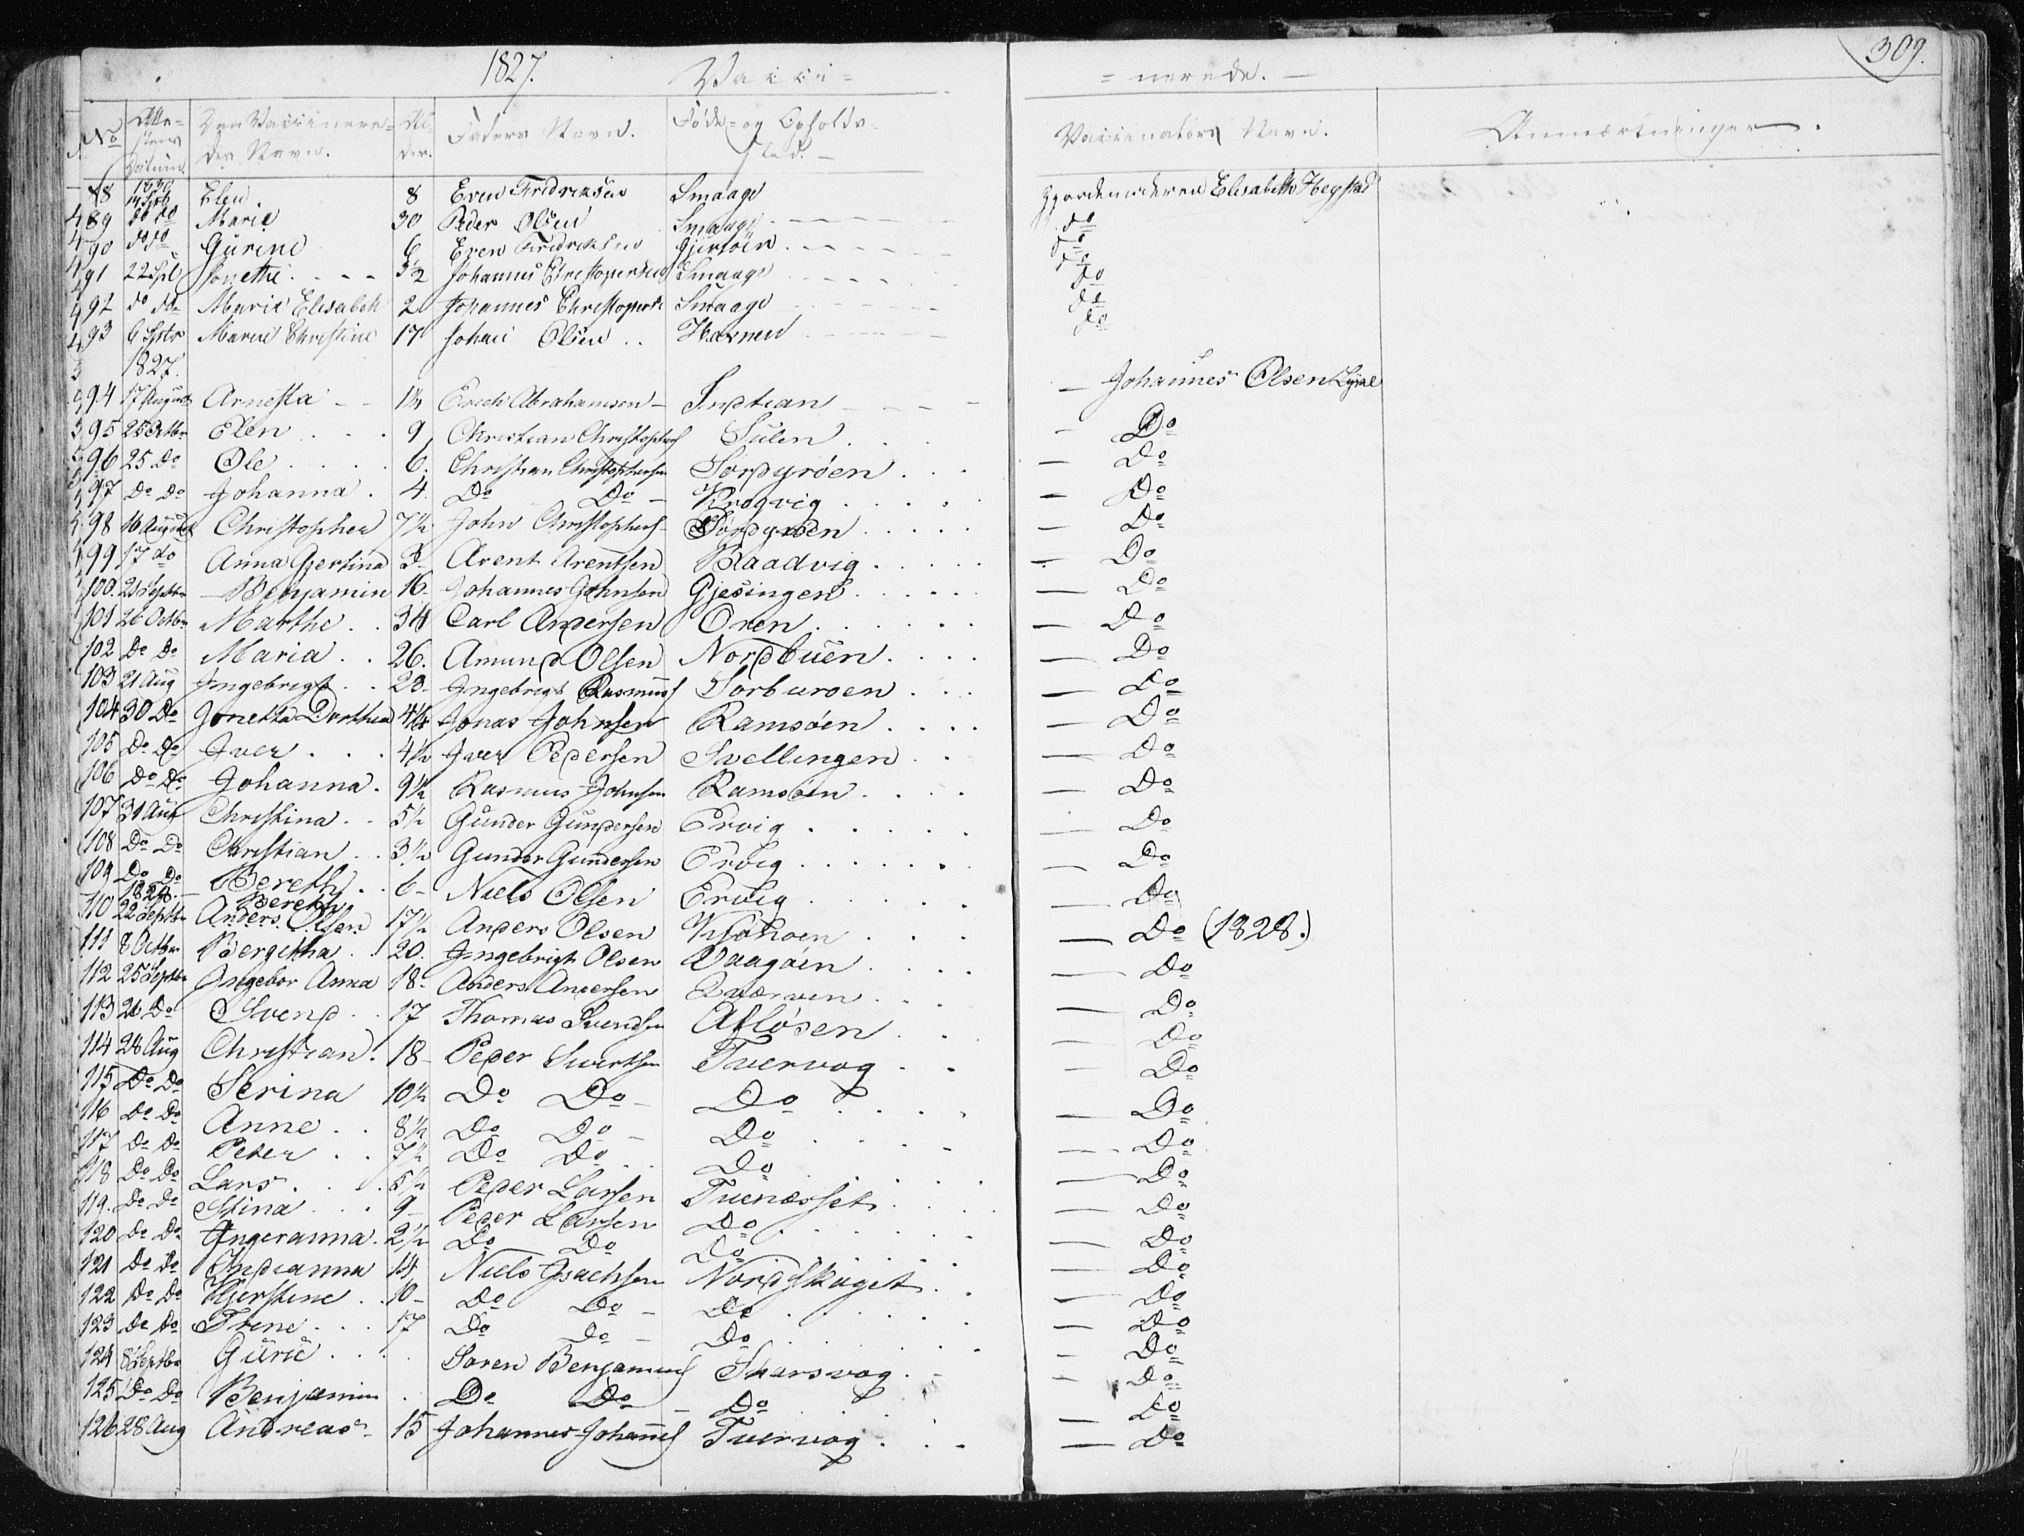 1827. Vacci= =nerede. 309.
No Atte=stens Datum. Den Vaccinere=des Navn. Al=der. Faders Navn. Føde= og Opholds=sted. Vaccinators Navn. Anmærkninger.
88 Elen. 8 Even Fredriksen Smaage Gjordemoderen Elisabeth Hegstad
89 do do Marie 30 Peder Olsen Smaage do
90 do do Gurine 6 Even Fredriksen Gjertöen do
91 22 Jonette 3½ Johannes Smaage do
92 do do Marie Elisabeth 2 Johannes Smaage do
93 6 Septr Maren Christine 17 Johan Olsen Havnen do
1827.
94 17 August Arnetta 1½ Erich Abrahamsen Indtian Johannes Olsen
95 25 Octbr Elen 9 Christian Christophers Sulen Do
96 25 Do Ole 6. Christian Christophersen Sordyröen Do
97 Do Do Johanna 4. Do Do Krogvig Do
98 16 August Christopher 7½ John Christophers Sordyröen Do
99 17 do Anna Gjertina 3 Arent Arentsen Raadvig Do
100. 21 Septbr Benjamin 16. Johannes Johnsen Gjesingen Do
101 26 Octbr Marthe 34 Carl Andersen Oren Do
102 Do Do Maria 26. Amund Olsen Nordbuen Do
103 21 Aug Ingebrigt 23. Ingebrigt Rasmuss Sorburoen Do
104 30 Do Jonetta Dorthea 4½ Jonas Johnsen Ramsöen Do
105 Do Do Iver 4½ Iver Pedersen Svellingen Do
106 Do Do Johanna 9½ Rasmus Johnsen Ramsöen Do
107 31 Aug Christina 5½ Gunder Gundersen Ervig Do
108 Do Do Christian 3½ Gunder Gundersen Ervig Do
109 Do Do Bereth 6 Niels Olsen Ervig Do
1828. Bereth
110 22 Septbr Anders Olsen 17½ Anders Olsen Do (1828.)
111 8 Octbr Bergitha 20. Ingebrigt Olsen Vaagöen Do
112 25 Septbr Ingebor Anna 18 Anders Andersen Qværven Do
113 26 Do Svend 17 Thomas Svendsen Aflösen Do
114 28 Aug Christian 18 Peder Sivertsen Tvervog Do
115 Do Do Serina 10½ Do Do Do Do
116 Do Do Anne 8½ Do Do Do Do
117 Do Do Peder 7½ Do Do Do Do
118 Do Do Lars 5½ Peder Larsen Tuenæsset Do
119. Do Do Stina 9 Peder Larsen Do Do
120 Do Do Ingeranna 2½ Do Do Do Do
121 Do Do Indianna 14 Niels Isachsen Nordskaget Do
122 Do Do Kjerstine 10 Do Do Do Do
123 Do Do Trine 17 Do Do Do Do
124 8 Septbr Gurie Soren Benjamins Skarsvog Do
125 Do Do Benjamin Do Do Do Do
126 28 Aug Andreas 15 Johannes Johanns Tvervog Do